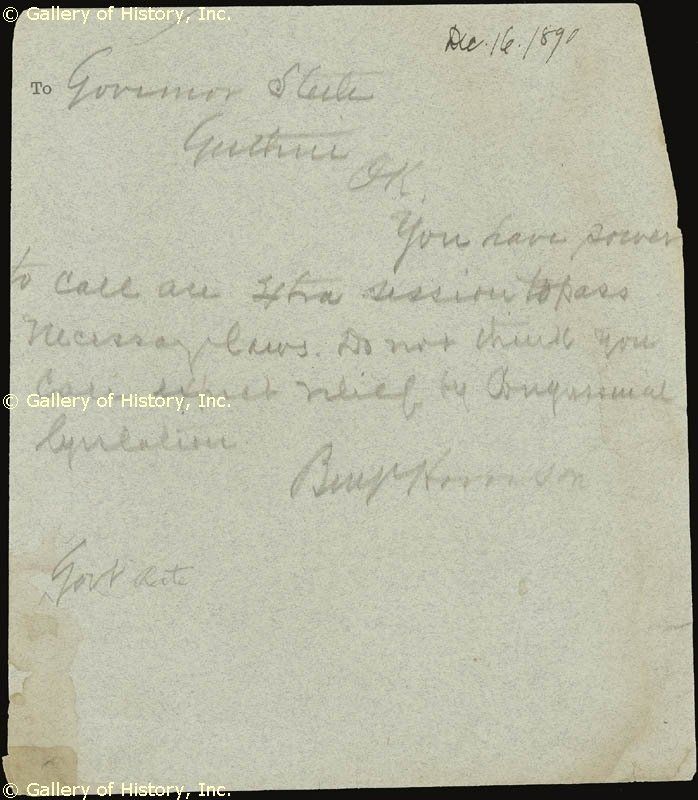 © Gallery of History, Inc.
Dec. 16. 1890
To Governor Steele
Guthrie
OK.
You have power
to call an extra session to pass
necessary laws. Do not think you
can expect relief by Congressional
legislation
© Gallery of History, Inc.
Benj Harrison
Govt rate
© Gallery of History, Inc.